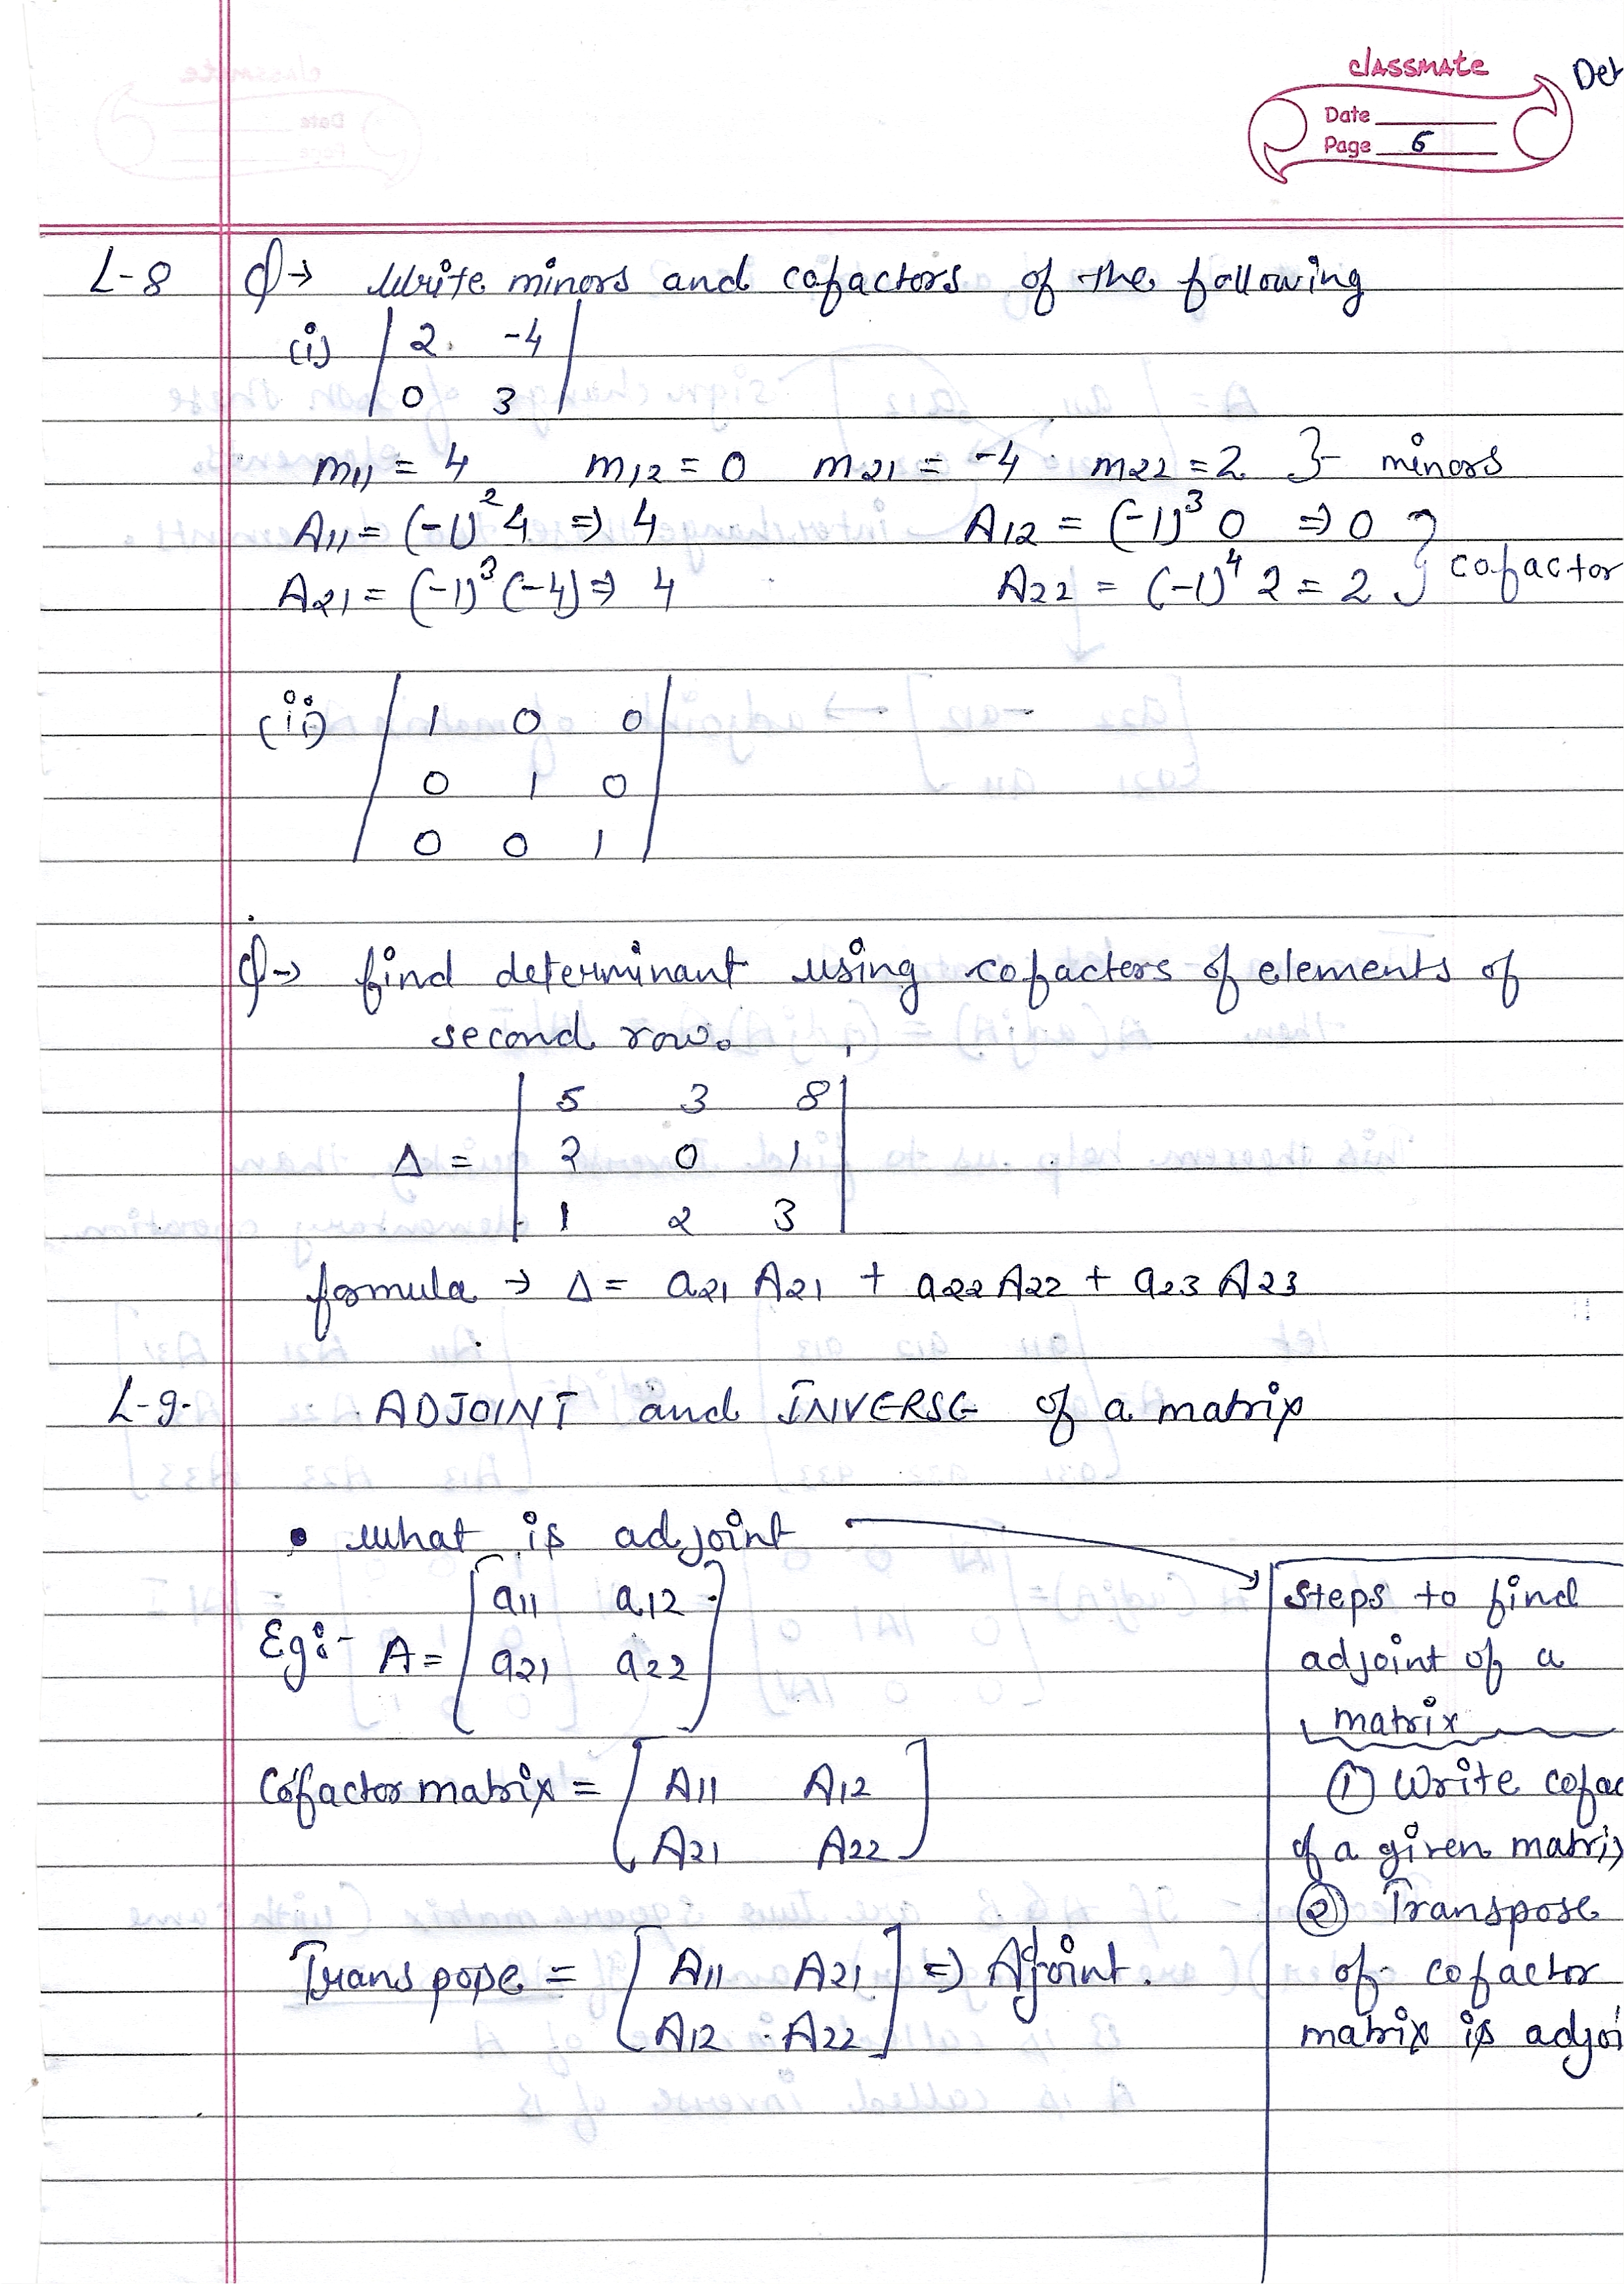 classmate
Det
Date
Page 6
L-8 Q→ Write minors and cofactors of the following
(i) | 2 -4 |
| 0 3 |
m11 = 4 m12 = 0 m21 = -4 m22 = 2 }- minors
A11 = (-1)² 4 ⇒ 4 A12 = (-1)³ 0 ⇒ 0 } cofactor
A21 = (-1)³ (-4) ⇒ 4 A22 = (-1)⁴ 2 = 2
(ii) | 1 0 0 |
| 0 1 0 |
| 0 0 1 |
Q→ find determinant using cofactors of elements of
second row.
| 5 3 8 |
Δ = | 2 0 1 |
| 1 2 3 |
formula → Δ = a21 A21 + a22 A22 + a23 A23
L-9. ADJOINT and INVERSE of a matrix
• What is adjoint
Eg:- A = [ a11 a12
a21 a22 ]
Cofactor matrix = [ A11 A12
A21 A22 ]
Transpose = [ A11 A21 ] ⇒ Adjoint.
A12 A22
Steps to find
adjoint of a
matrix
① Write cofac
of a given matrix
② Transpose
of cofactor
matrix is adjoi